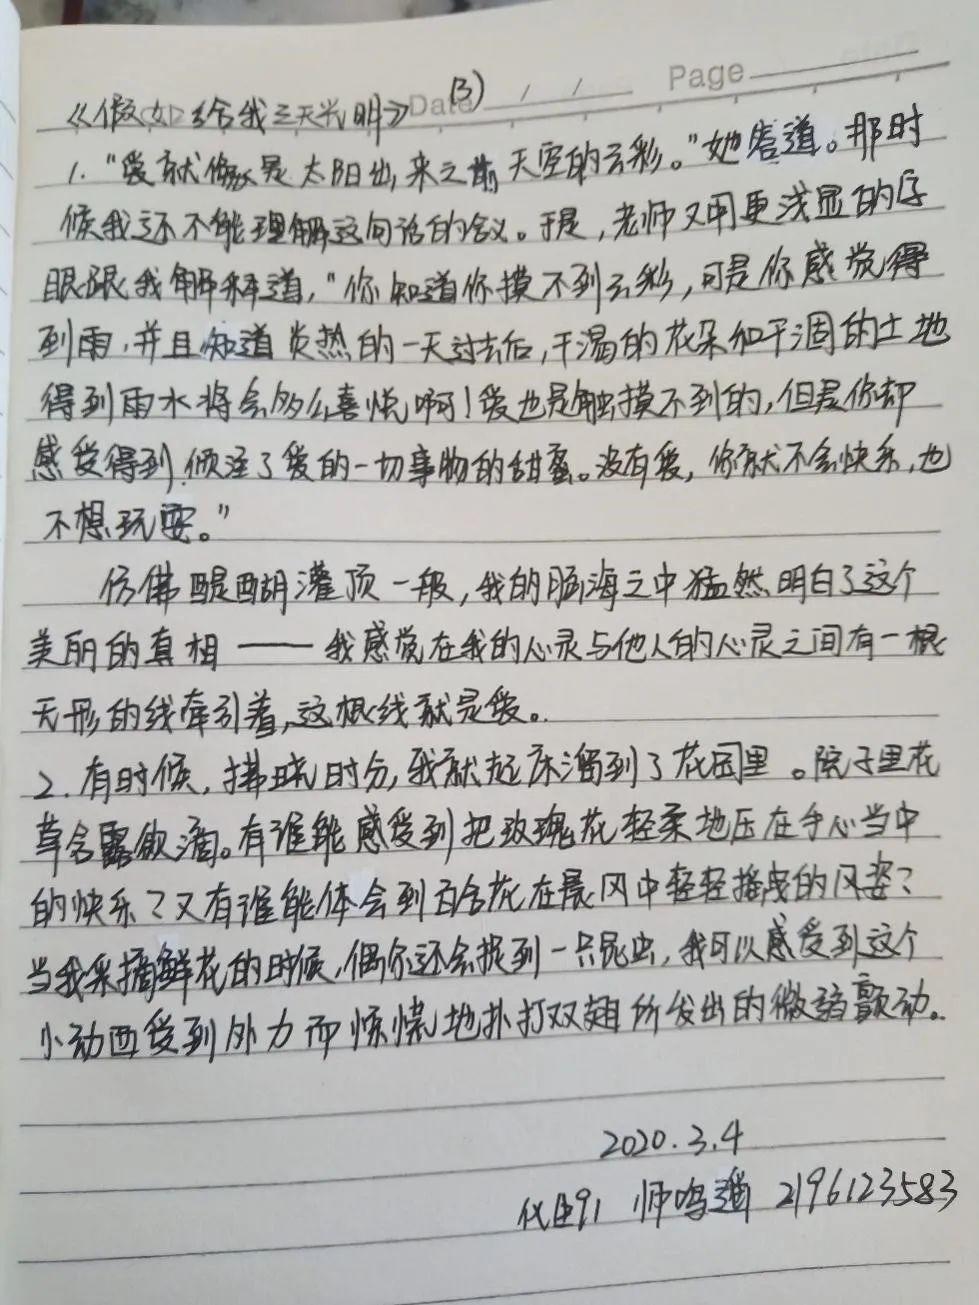 《假如给我三天光明》Date (3) / / Page
1. "爱就像是太阳出来之前天空的云彩。"她答道。那时
候我还不能理解这句话的含义。于是,老师又用更浅显的字
眼跟我解释道,"你知道你摸不到云彩,可是你感觉得
到雨,并且知道炎热的一天过去后,干渴的花朵和干涸的土地
得到雨水将会多么喜悦啊!爱也是触摸不到的,但是你却
感受得到,倾注了爱的一切事物的甜蜜。没有爱,你就不会快乐,也
不想玩耍。"
仿佛醍醐灌顶一般,我的脑海之中猛然明白了这个
美丽的真相——我感觉在我的心灵与他人的心灵之间有一根
无形的线牵引着,这根线就是爱。
2. 有时候,拂晓时分,我就起床溜到了花园里。院子里花
草含露欲滴。有谁能感受到把玫瑰花轻柔地压在手心当中
的快乐?又有谁能体会到百合花在晨风中轻轻摇曳的风姿?
当我采摘鲜花的时候,偶尔还会捉到一只昆虫,我可以感受到这个
小动西受到外力而惊慌地扑打双翅所发出的微弱颤动。
2020.3.4
91 帅鸣 2196123583